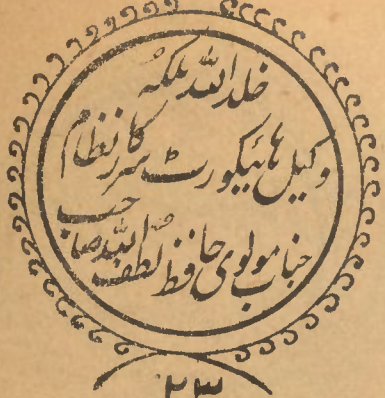 خلد اللہ ملکہ
وکیل ہائیکورٹ سرکار نظام
جناب مولوی حافظ لطف اللہ صاحب
۲۳